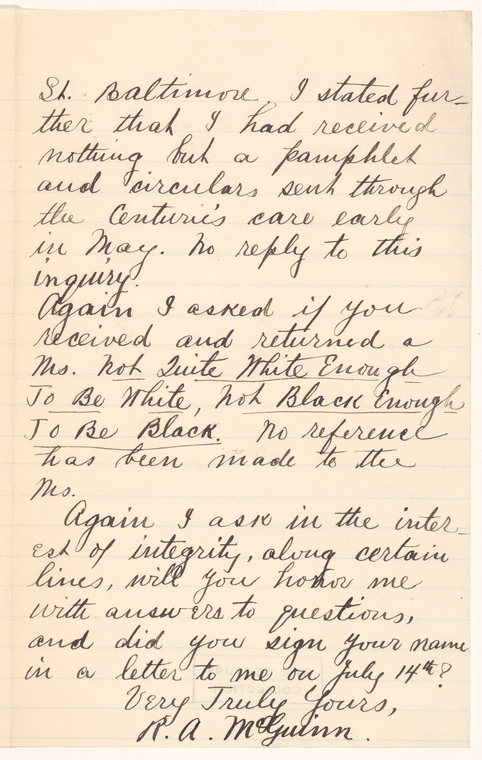 St. Baltimore, I stated fur-
ther that I had received
nothing but a pamphlet
and circulars sent through
the Centurie's care early
in May. No reply to this
inquiry.
Again I asked if you
received and returned a
Ms. Not Quite White Enough
To Be White, Not Black Enough
To Be Black. No reference
has been made to the
Ms.
Again I ask in the inter-
est of integrity, along certain
lines, will you honor me
with answers to questions,
and did you sign your name
in a letter to me on July 14th?
Very Truly Yours,
R. A. McGuinn.